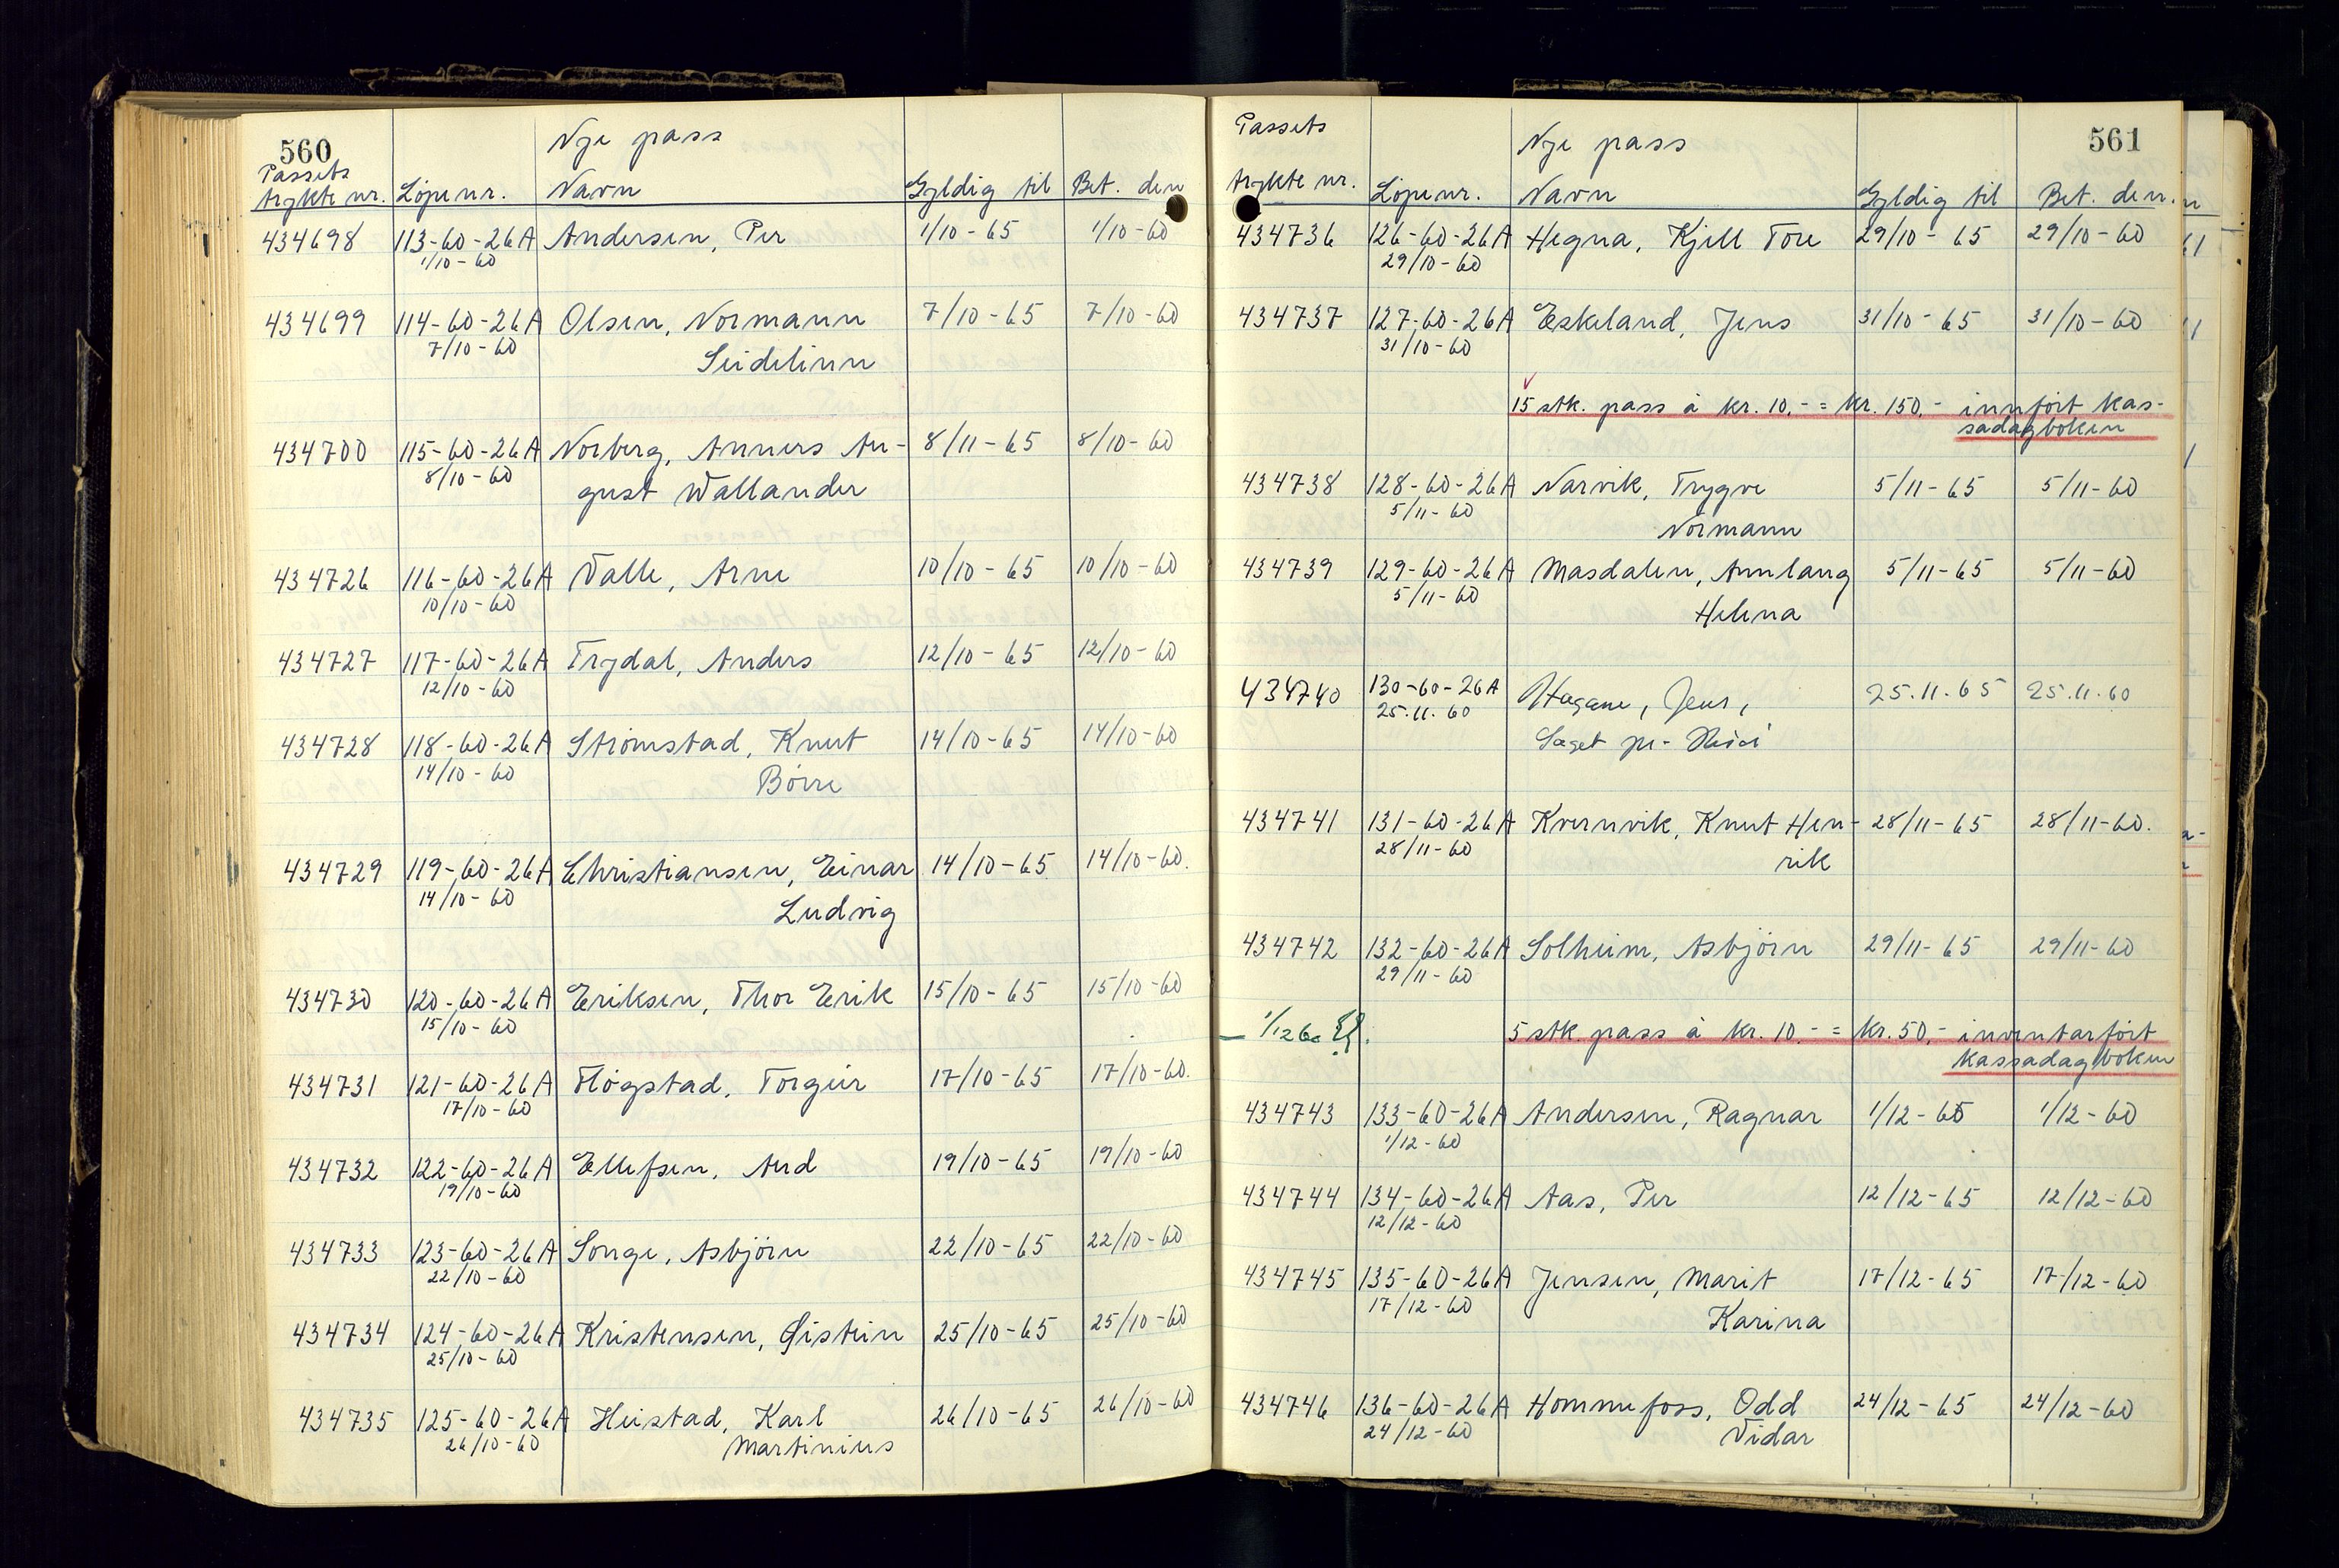 560
Nye pass
Passets
trykte nr. Løpenr. Navn Gyldig til Bet. den
434698 113-60-26A Andersen, Per 1/10-65 1/10-60
1/10-60
434699 114-60-26A Olsen, Normann 7/10-65 7/10-60
7/10-60 Seidelinn
434700 115-60-26A Norberg, Anners Au- 8/11-65 8/10-60
8/10-60 gust Wallander
434726 116-60-26A Valle, Arne 10/10-65 10/10-60
10/10-60
434727 117-60-26A Trydal, Anders 12/10-65 12/10-60
12/10-60
434728 118-60-26A Strømstad, Knut 14/10-65 14/10-60
14/10-60 Børre
434729 119-60-26A Christiansen, Einar 14/10-65 14/10-60.
14/10-60 Ludvig
434730 120-60-26A Eriksen, Thor Erik 15/10-65 15/10-60
15/10-60
434731 121-60-26A Høgstad, Torgeir 17/10-65 17/10-60.
17/10-60
434732 122-60-26A Ellefsen, Aud 19/10-65 19/10-60
19/10-60
434733 123-60-26A Songe, Asbjørn 22/10-65 22/10-60
22/10-60
434734 124-60-26A Kristensen, Øistein 25/10-65 25/10-60
25/10-60
434735 125-60-26A Heistad, Karl 26/10-65 26/10-60
26/10-60 Martinius
Passets
Nye pass
561
trykte nr. Løpenr. Navn Gyldig til Bet. den.
434736 126-60-26A Hegna, Kjell Tore 29/10-65 29/10-60
29/10-60
434737 127-60-26A Eskeland, Jens 31/10-65 31/10-60
31/10-60
15 stk. pass à kr. 10.- = kr. 150.- innført kas-
sadagboken
434738 128-60-26A Narvik, Trygve 5/11-65 5/11-60
5/11-60 Normann
434739 129-60-26A Masdalen, Annlaug 5/11-65 5/11-60
5/11-60 Helena
434740 130-60-26A Hagane, Jens, 25.11.65 25.11.60
25.11.60
434741 131-60-26A Kvernvik, Knut Hen- 28/11-65 28/11-60.
28/11-60 rik
434742 132-60-26A Solheim, Asbjørn 29/11-65 29/11-60
29/11-60
1/12 60 5 stk. pass à kr. 10.- = kr. 50.- inventarført
kassadagboken
434743 133-60-26A Andersen, Ragnar 1/12-65 1/12-60
1/12-60
434744 134-60-26A Aas, Per 12/12-65 12/12-60
12/12-60
434745 135-60-26A Jensen, Marit 17/12-65 17/12-60
17/12-60 Karina
434746 136-60-26A Hommefoss, Odd 24/12-65 24/12-60
24/12-60 Vidar